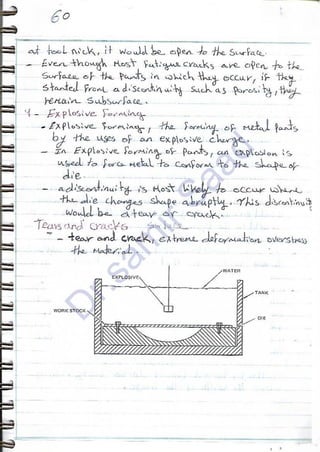 60
at tool nick, it would be open to the surface.
- Even though Most fatigue cracks are open to the
surface of the Parts in which they occur, if they
started from a discontinuity such as Porosity, they
remain Subsurface.
4 - Explosive Forming
- EXPlosive Forming, the forming of Metal Parts
by the uses of an explosive charge.
- In Explosive forming of Parts, an explosion is
used to force Metal to Conform to the shape of
die.
- a discontinuity is Most likely to occur where
the die changes shape abruptly. This discontinuity
would be a tear or crack.
Tears and cracks
- tear and crack, extreme deformation overstress
the Material.
EXPLOSIVE
WATER
TANK
WORK STOCK
DIE
Dr. Samir Saad